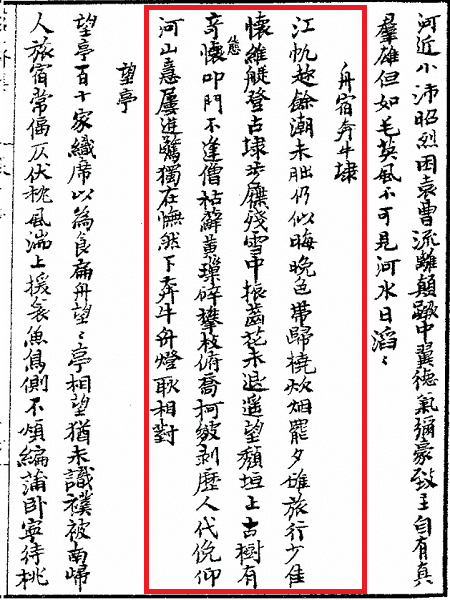 河近小沛昭烈困袁曹流離顛蹶中翼德氣彌豪致主自有真
羣雄但如毛英風不可見河水日滔〻
舟宿奔牛埭
江帆趁餘潮未朏仍似晦晚色帶歸橈炊烟罷夕碓旅行少佳
懷維艇登古埭步屧殘雪中振齒花未退遥望頹垣上古樹有
奇懷態叩門不逢僧枯蘚黄璅碎攀枝俯喬柯皴剥歷人代俛仰
河山意屢進驚獨在憮然下奔牛舟燈耿相對
望亭
望亭百十家織席以為食扁舟望〻亭相望猶未識襆被南歸
人旅宿常偪仄伏枕風湍上援衾魚鳥側不煩編蒲卧寧待桃